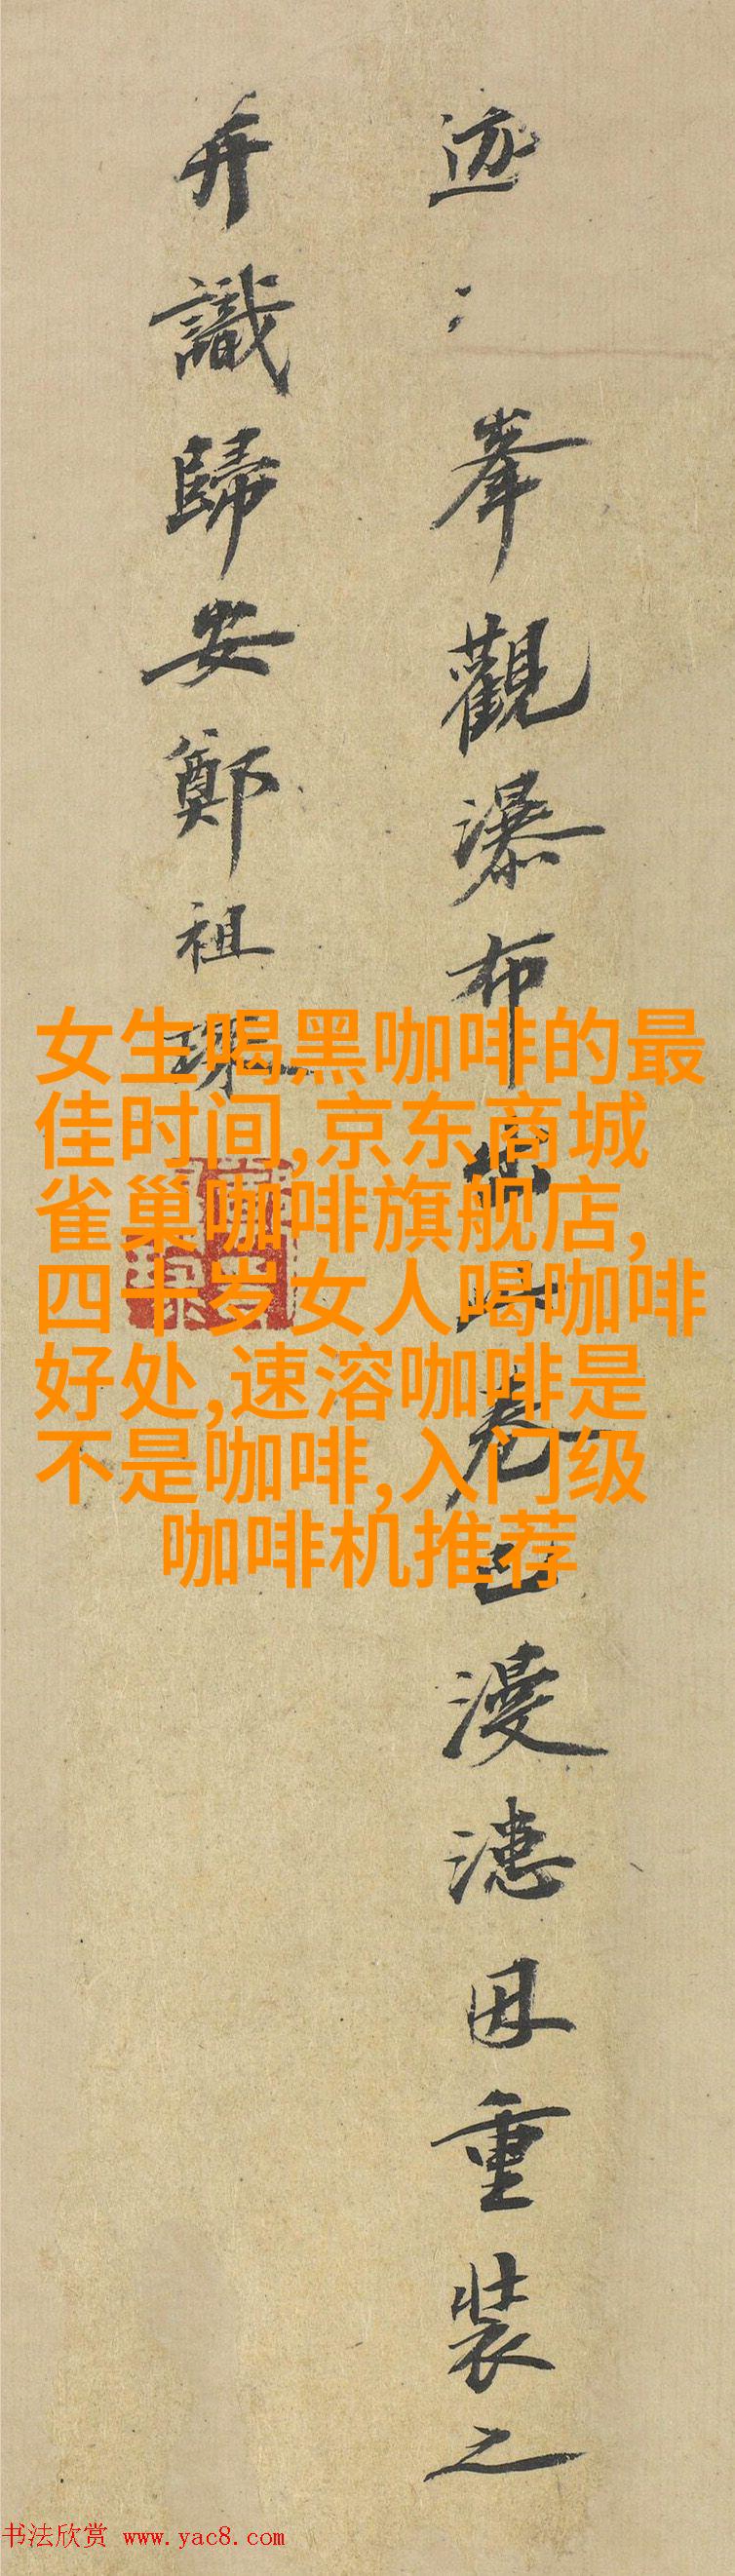 迹〻峯觀瀑布
卷
漫漶因重裝之
弆識歸安鄭祖琛
女生喝黑咖啡的最
佳时间,京东商城
雀巢咖啡旗舰店,
四十岁女人喝咖啡
好处,速溶咖啡是
不是咖啡,入门级
咖啡机推荐
书法欣赏 www.yac8.com